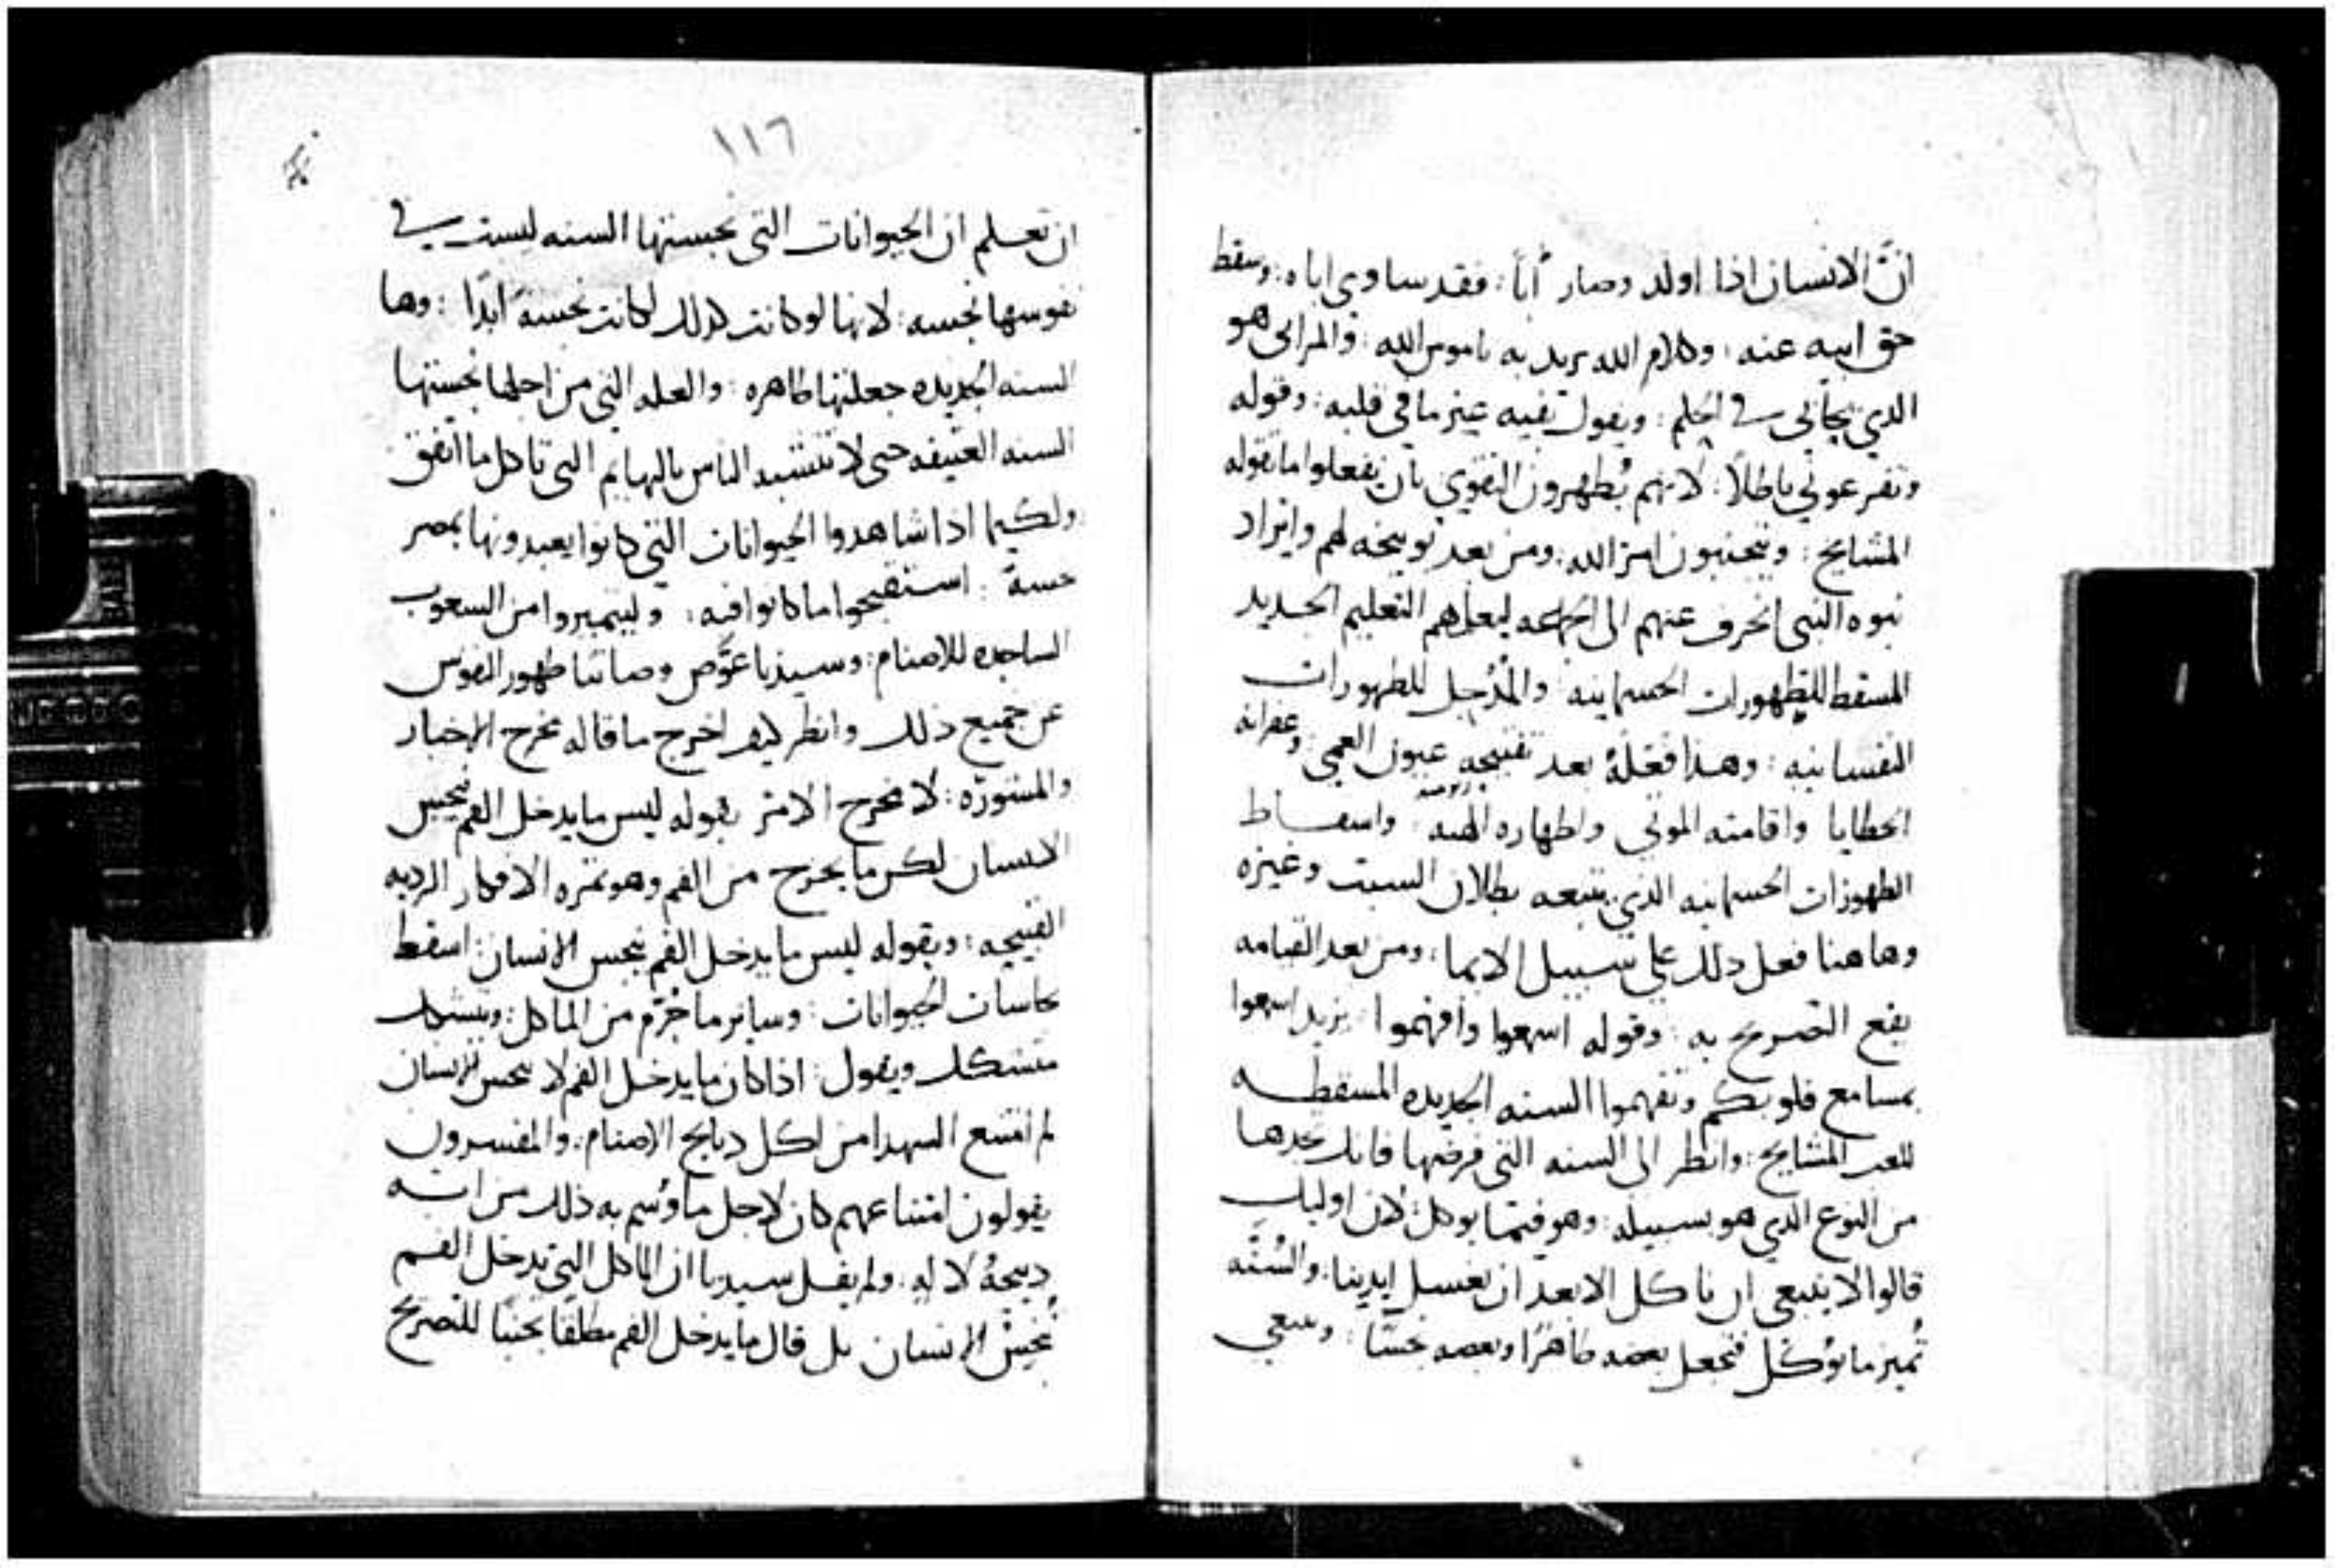 انّ الانسان اذا اولد وصار أباً: فقد ساوى اباه: وسقط
حق ابيه عنه: وكلام الله يريد به ناموس الله: والمرائى هو
الذي في الحلم: ويقول بفيه غير ما في قلبه: وقوله
وتفزعوني باطلاً: لانهم يُظهرون التقوي بان يفعلوا ما تقوله
المشايخ: ويتجنبون امر الله: ومن بعد توبيخه لهم وايراد
نبوه النبى انحرف عنهم الى الجماعه ليعلمهم التعليم الجديد
المسقط للتطهورات الجسمانيه والمُدخل للطهورات
النفسانيه: وهذا فعلهُ بعد تفتيحه عيون العمي: وغفرانه
الخطايا واقامته الموتي واظهاره واسقاط
الطهورات الجسمانيه الذي يتبعه بطلان السبت وغيره
وهاهنا فعل ذلك علي سبيل الايما: ومن بعد القيامه
يقع التصريح به: وقوله اسمعوا وافهموا يريد اسمعوا
بمسامع قلوبكم وتفهموا السنه الجديده المسقطه
للعب المشايخ: وانظر الى السنه التى فرضها فانك تجدها
من النوع الذي هو بسبيله: وهو فيما يوكل: لان اوليك
قالوا لا ينبغي ان ناكل الا بعد ان نغسل ايدينا: والسُنَّه
تُميز ما يؤكل فتجعل بعضه طاهرًا وبعضه نجسًا: وينبغي
١١٦
ان تعلم ان الحيوانات التى نجستها السنه ليست في
نفوسها نجسه: لانها لو كانت كذلك لكانت نجسه ابدًا: وها
السنه الجديده جعلتها طاهره: والعله التي من اجلها نجستها
السنه العتيقه حتى لا تتشبه الناس بالبهايم التى تاكل ما اتفق
ولكيما اذا شاهدوا الحيوانات التي كانوا يعبدونها بمصر
نجسةً: استقبحوا ما كانوا فيه: وليتميزوا من الشعوب
الساجده للاصنام: وسيدنا عوَّض وصاتنا طهور النفوس
عن جميع ذلك وانظر كيف اخرج ما قاله مخرج الاخبار
والمشورّه: لا مخرج الامر بقوله ليس ما يدخل الفم ينجس
الانسان لكن ما يخرج من الفم وهو ثمره الافكار الرديه
القبيحه: وبقوله ليس ما يدخل الفم ينجس الانسان: اسقط
نجاسات الحيوانات: وساير ما حُرِّم من الماكل: ويتشكك
متشكك ويقول: اذا كان ما يدخل الفم لا ينجس الانسان
لم امتنع الشهدا من اكل ذبايح الاصنام: والمفسرون
يقولون امتناعهم كان لاجل ما وُسم به ذلك من انه
ذبيحةُ لاله: ولم يقل سيدنا ان الماكل التى تدخل الفم
تُنجسُ الانسان بل قال ما يدخل الفم مطلقًا تجنبًا للتصريح